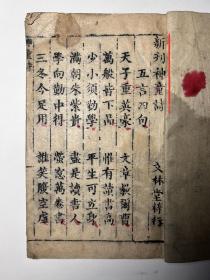 新刋神童詩
五言四句
文林堂梓行
天子重英豪　文章教爾曹
萬般皆下品　惟有讀書高
少小須勤學　平生可立身
滿朝朱紫貴　盡是讀書人
學向勤中得　螢窓萬卷書
三冬今足用　誰笑腹空虛